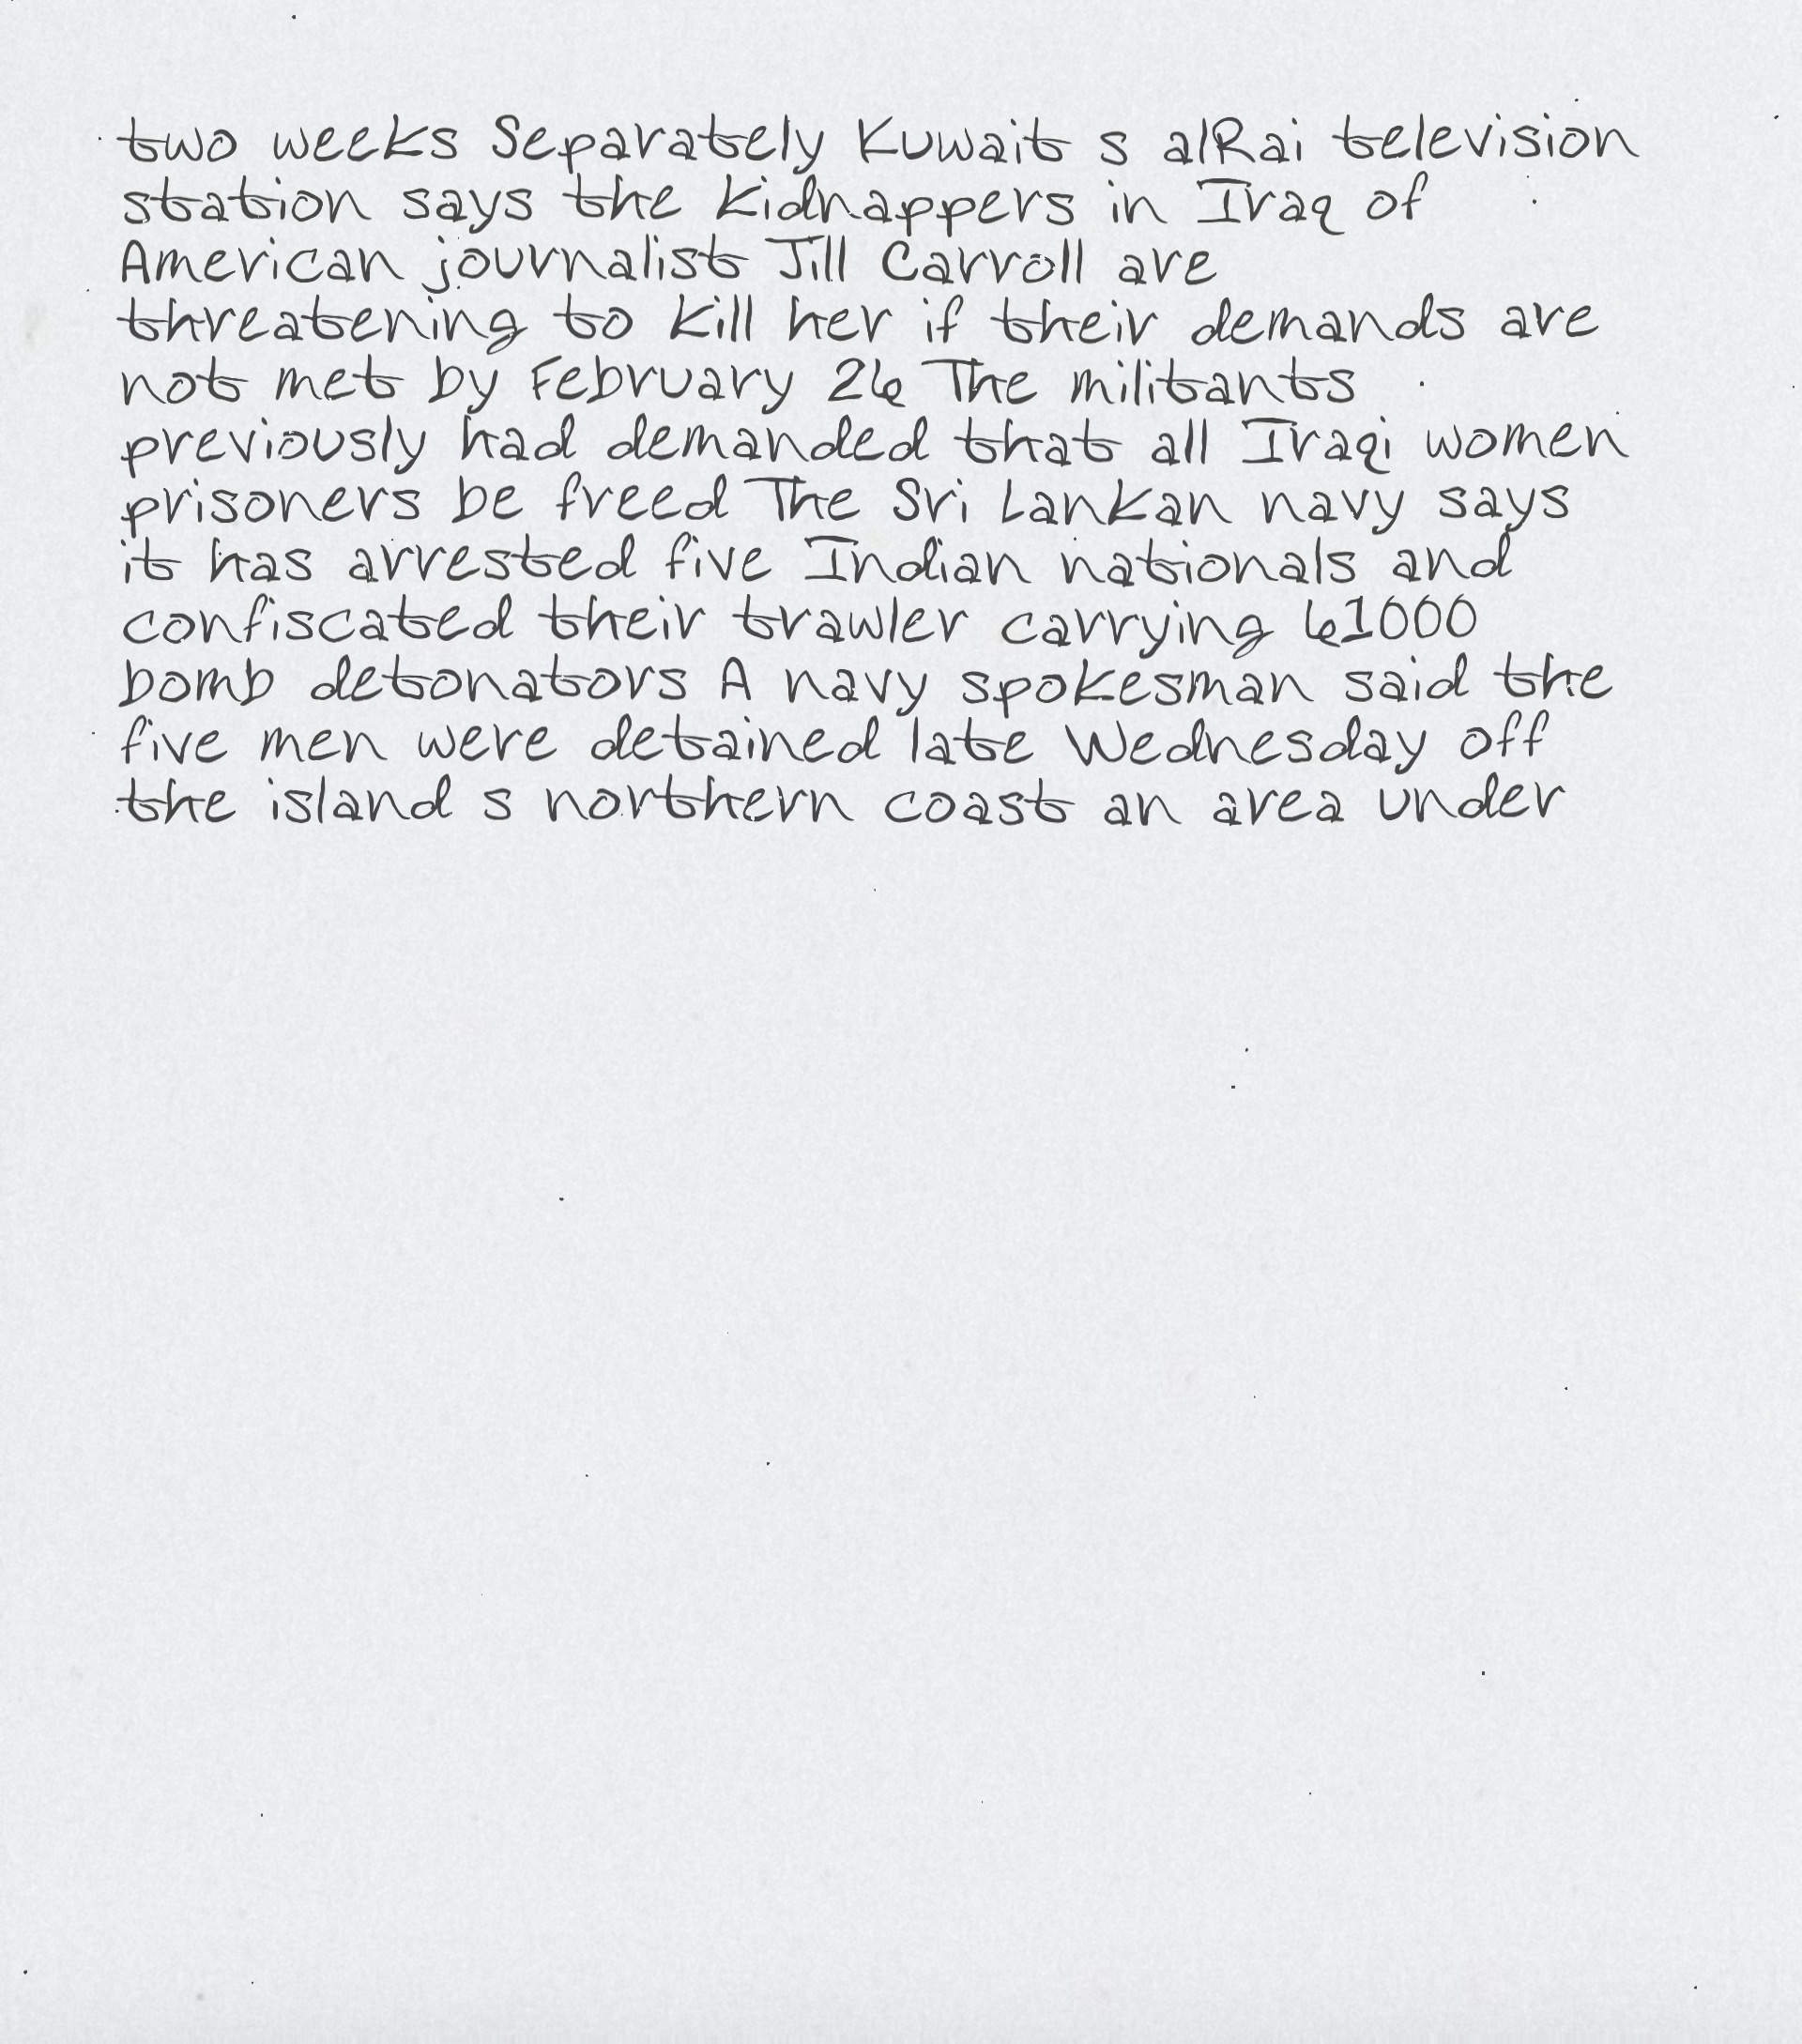 two weeks Separately Kuwait s alRai television
station says the kidnappers in Iraq of
American journalist Jill Carroll are
threatening to kill her if their demands are
not met by February 26 The militants
previously had demanded that all Iraqi women
prisoners be freed The Sri Lankan navy says
it has arrested five Indian nationals and
confiscated their trawler carrying 61000
bomb detonators A navy spokesman said the
five men were detained late Wednesday off
the island s northern coast an area under